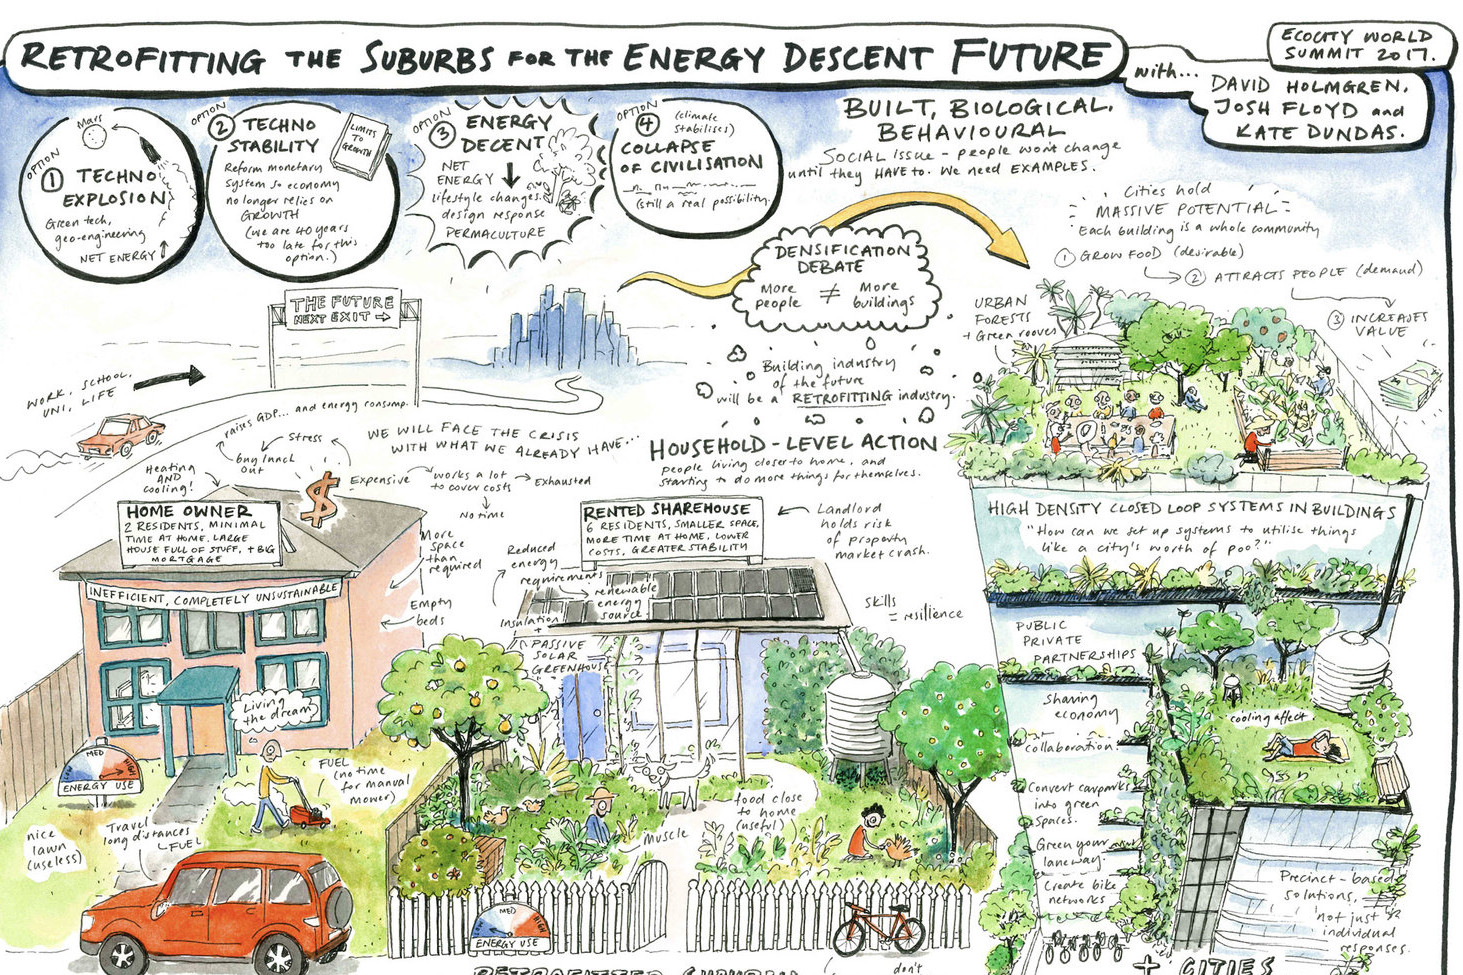 RETROFITTING THE SUBURBS FOR THE ENERGY DESCENT FUTURE
with...
ECOCITY WORLD
SUMMIT 2017.
DAVID HOLMGREN,
JOSH FLOYD and
KATE DUNDAS.
Mars
OPTION
1 TECHNO
EXPLOSION
Green tech,
geo-engineering
NET ENERGY ↑
OPTION
2 TECHNO
STABILITY
LIMITS
TO
GROWTH
Reform monetary
system so economy
no longer relies on
GROWTH
(we are 40 years
too late for this
option.)
OPTION
3 ENERGY
DECENT
NET
ENERGY ↓
lifestyle changes.
design response
PERMACULTURE
OPTION
4 (climate
stabilises)
COLLAPSE
OF CIVILISATION
(still a real possibility.
BUILT, BIOLOGICAL.
BEHAVIOURAL
SOCIAL ISSUE - people won't change
until they HAVE to. We need EXAMPLES.
DENSIFICATION
DEBATE
More ≠ More
people buildings
Building industry
of the future
will be a RETROFITTING industry.
Cities hold
MASSIVE POTENTIAL
Each building is a whole community
1 GROW FOOD (desirable)
2 ATTRACTS PEOPLE (demand)
3 INCREASES
VALUE
URBAN
FORESTS
+ Green rooves
THE FUTURE
NEXT EXIT →
WORK, SCHOOL,
UNI, LIFE
raises GDP... and energy consump.
Stress
buy lunch
out
Heating
AND
cooling!
WE WILL FACE THE CRISIS
WITH WHAT WE ALREADY HAVE...
Expensive works a lot → Exhausted
to cover costs
No time
$
HOUSEHOLD-LEVEL ACTION
people living closer to home, and
starting to do more things for themselves.
HOME OWNER
2 RESIDENTS, MINIMAL
TIME AT HOME, LARGE
HOUSE FULL OF STUFF, + BIG
MORTGAGE
INEFFICIENT, COMPLETELY UNSUSTAINABLE
More
space
than
required
Empty
beds
Living
the dream
LOW MED HIGH
ENERGY USE
FUEL
(no time
for manual
mower)
nice
lawn
(useless)
Travel
long distances
FUEL
RENTED SHAREHOUSE
6 RESIDENTS, SMALLER SPACE,
MORE TIME AT HOME, LOWER
COSTS, GREATER STABILITY
Landlord
holds risk
of property
market crash.
Reduced
energy
requirements
renewable
energy
source
insulation
+
PASSIVE
SOLAR
GREENHOUSE
skills
= resilience
food close
to home
(useful)
Muscle
LOW MED HIGH
ENERGY USE
RETROFITTED SUBURBIA
don't
HIGH DENSITY CLOSED LOOP SYSTEMS IN BUILDINGS
"How can we set up systems to utilise things
like a city's worth of poo?"
PUBLIC
PRIVATE
PARTNERSHIPS
sharing
economy
collaboration
cooling affect
Convert carparks
into green
spaces.
Green your
laneway.
Create bike
networks
Precinct-based
solutions,
not just
individual
responses.
+ CITIES